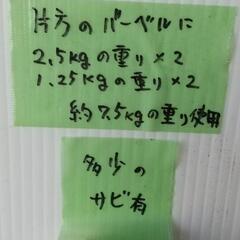 片方のバーベルに
2.5kgの重り×2
1.25kgの重り×2
約7.5kgの重り使用
多少の
サビ有